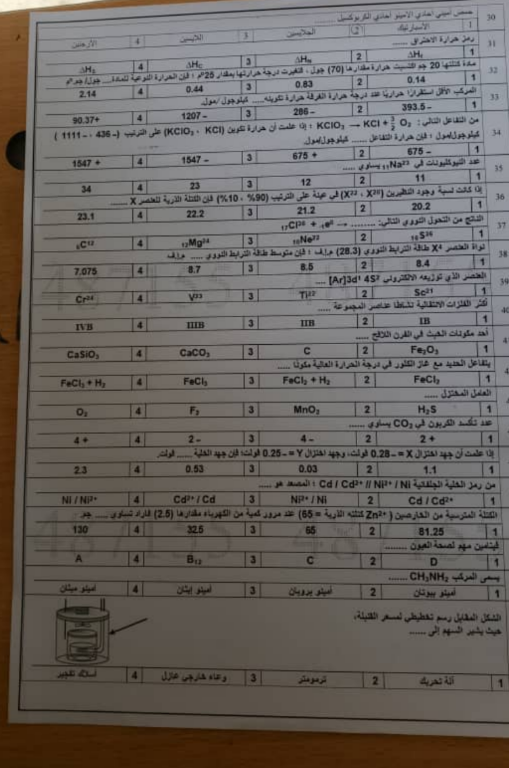 30 حمض أميني أحادي الأمينو أحادي الكربوكسيل
1 الأسبارتيك 2 الجلايسين 3 اللايسين 4 الأرجنين
31 رمز حرارة الاحتراق ......
1 ΔHf 2 3 ΔHC 4
32 مادة كتلتها 20 جم اكتسبت حرارة مقدارها (70) جول ، فتغيرت درجة حرارتها بمقدار 25°م ؛ فإن الحرارة النوعية للمادة.... جول/ جم.°م
1 0.14 2 0.83 3 0.44 4 2.14
33 المركب الأقل استقراراً حرارياً عند درجة حرارة الغرفة حرارة تكوينه..... كيلوجول /مول.
1 – 393.5 2 – 286 3 – 1207 4 +90.37
34 من التفاعل التالي: KClO3 → KCl + 3/2 O2 ؛ إذا علمت أن حرارة تكوين (KClO3 ، KCl) على الترتيب (– 436 ، – 1111)
كيلوجول/مول ؛ فإن حرارة التفاعل ...... كيلوجول/مول.
1 – 675 2 + 675 3 – 1547 4 + 1547
35 عدد النيوكليونات في 11Na23 يساوي .....
1 11 2 12 3 23 4 34
36 إذا كانت نسبة وجود النظيرين (X20 ، X22) في عينة على الترتيب (90% ، 10%) فإن الكتلة الذرية للعنصر X ......
1 20.2 2 21.2 3 22.2 4 23.1
37 الناتج من التحول النووي التالي: 17Cl36 + -1e0 → ........
1 16S36 2 10Ne22 3 12Mg24 4 6C12
38 نواة العنصر X4 طاقة الترابط النووي (28.3) م.إ.ف ؛ فإن متوسط طاقة الترابط النووي ..... م.إ.ف.
1 8.4 2 8.5 3 8.7 4 7.075
39 العنصر الذي توزيعه الإلكتروني [Ar]3d1 4S2 .....
1 Sc21 2 Ti22 3 V23 4 Cr24
40 أكثر الفلزات الانتقالية نشاطاً عناصر المجموعة .....
1 IB 2 IIB 3 IIIB 4 IVB
أحد مكونات الخبث في الفرن اللافح .....
1 Fe2O3 2 C 3 CaCO3 4 CaSiO3
يتفاعل الحديد مع غاز الكلور في درجة الحرارة العالية مكوناً .....
1 FeCl2 2 FeCl2 + H2 3 FeCl3 4 FeCl3 + H2
العامل المختزل .....
1 H2S 2 MnO2 3 F2 4 O2
عدد تأكسد الكربون في CO2 يساوي ......
1 + 2 2 – 4 3 – 2 4 + 4
إذا علمت أن جهد اختزال X = – 0.28 فولت، وجهد اختزال Y = – 0.25 فولت؛ فإن جهد الخلية ...... فولت.
1 1.1 2 0.03 3 0.53 4 2.3
من رمز الخلية الجلفانية Cd / Cd2+ // Ni2+ / Ni ؛ المصعد هو .....
1 Cd / Cd2+ 2 Ni2+ / Ni 3 Cd2+ / Cd 4 Ni / Ni2+
الكتلة المترسبة من الخارصين (Zn2+ كتلته الذرية = 65) عند مرور كمية من الكهرباء مقدارها (2.5) فاراد تساوي ..... جم.
1 81.25 2 65 3 32.5 4 130
فيتامين مهم لصحة العيون ........
1 D 2 C 3 B12 4 A
يسمى المركب CH3NH2 ......
1 أمينو بيوتان 2 أمينو بروبان 3 أمينو إيثان 4 أمينو ميثان
الشكل المقابل رسم تخطيطي لمسعر القنبلة،
حيث يشير السهم إلى ......
1 آلة تحريك 2 ترمومتر 3 وعاء خارجي عازل 4 أسلاك تفجير